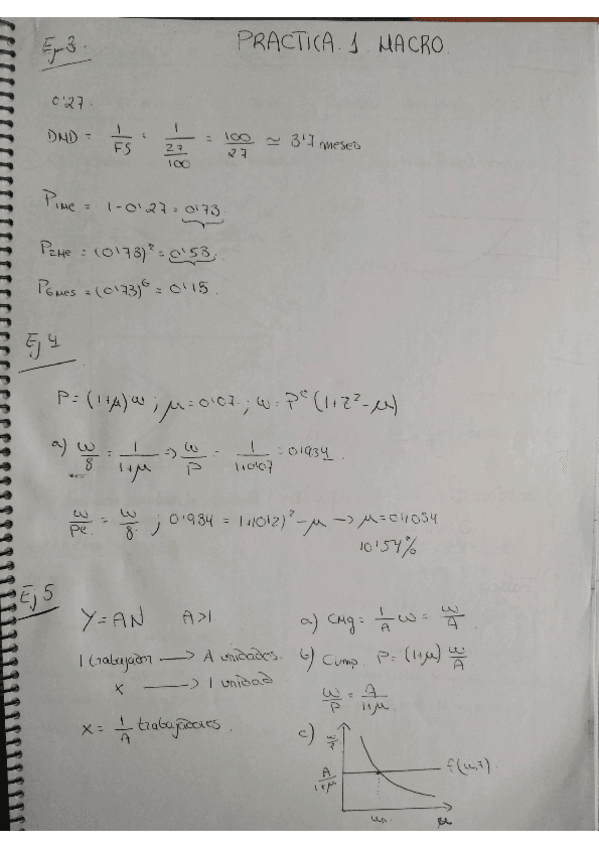 PRACTICA 1 MACRO.
Ej 3.
0'27.
DND = 1/FS = 1/(27/100) = 100/27 ≃ 3'7 meses
P1me = 1-0'27 = 0'73.
P2me = (0'73)² = 0'53.
P6mes = (0'73)⁶ = 0'15.
Ej 4
P = (1+μ)ω ; μ = 0'07 ; ω = Pᵉ (1+z²-μ)
a) ω/8 = 1/(1+μ) => ω/P = 1/(1+0'07) = 0'934.
ω/Pe = ω/8 ; 0'934 = 1+(0'2)² - μ → μ = 0'1054
10'54%
Ej 5
Y = AN A>1
1 trabajador → A unidades.
x → 1 unidad
x = 1/A trabajadores.
a) CMg = 1/A ω = ω/A.
b) Cump. P = (1+μ) ω/A
ω/P = A/(1+μ)
c) ω/P
A/(1+μ)
f(u,z)
un.
μ